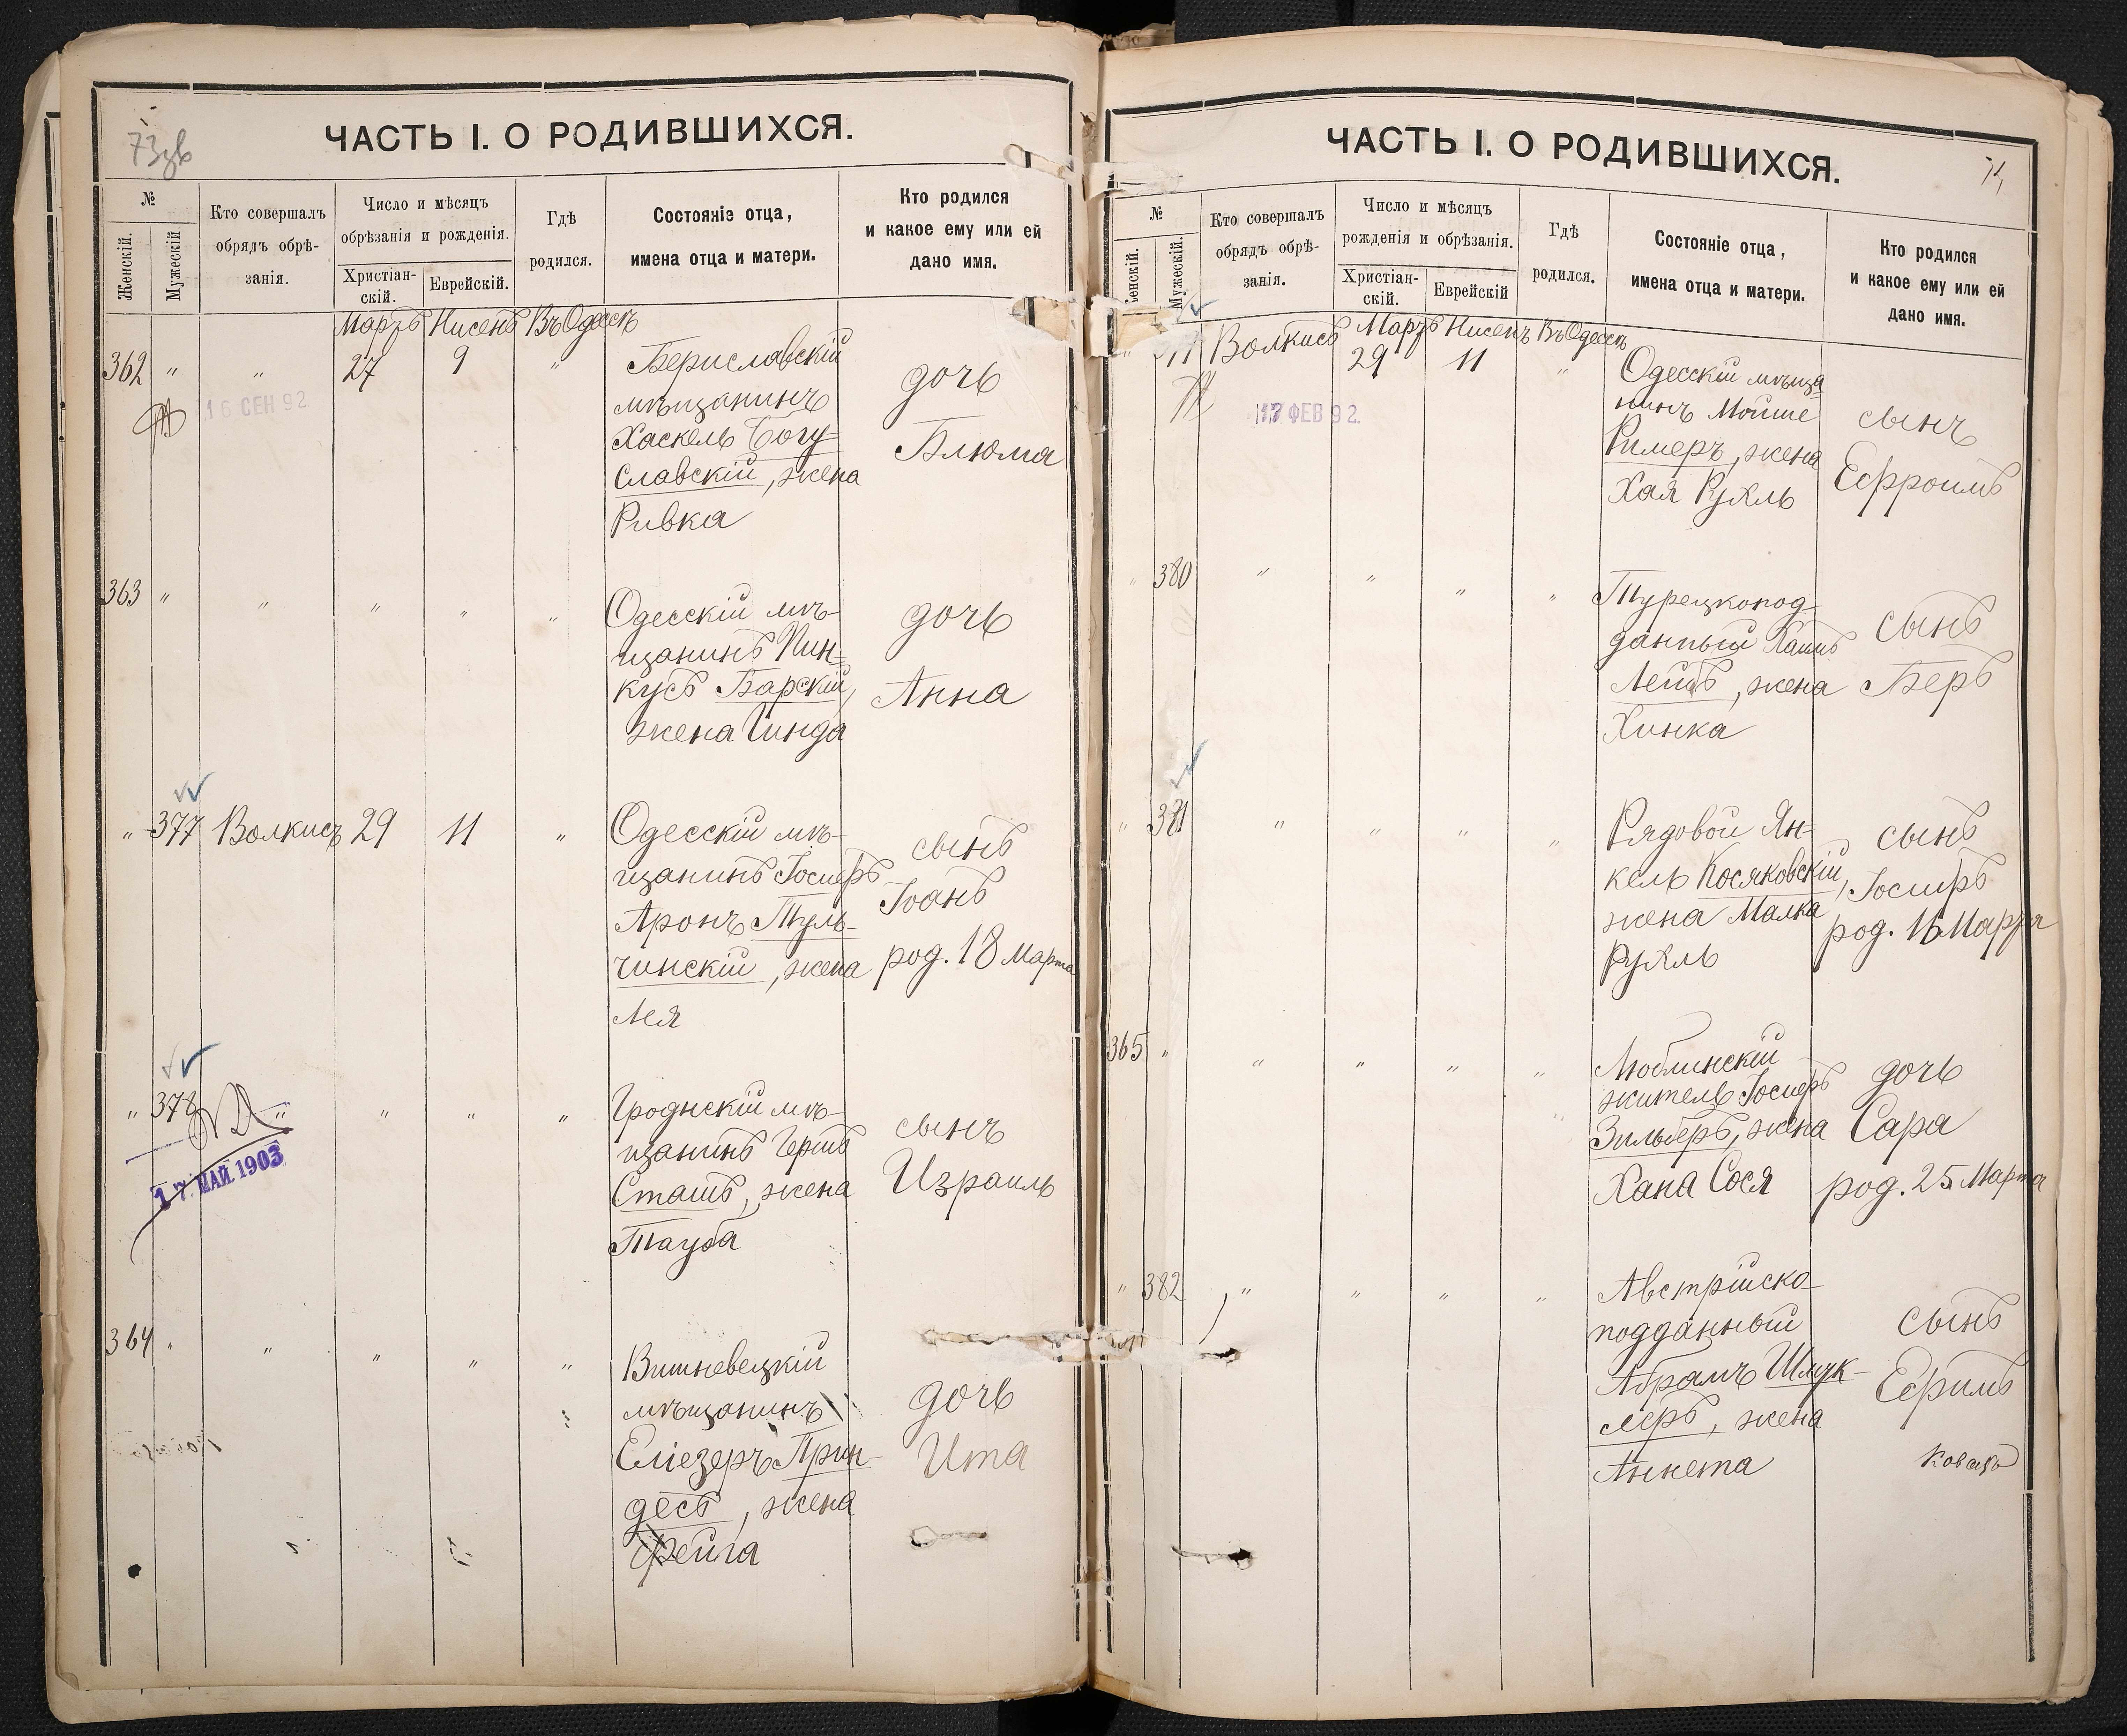 73об
ЧАСТЬ I. О РОДИВШИХСЯ.
№
Женскій.
Мужескій
Кто совершалъ
обрядъ обрѣ-
занія.
Число и мѣсяцъ
обрѣзанія и рожденія.
Христіан-
скій.
Еврейскій.
Гдѣ
родился.
Состояніе отца,
имена отца и матери.
Кто родился
и какое ему или ей
дано имя.
Мартъ Нисенъ Въ Одессѣ
362 " " 27 9 "
16 СЕН 92
Бериславскій
мѣщанинъ
Хаскель Богу-
славскій, жена
Ривка
дочь
Блюма
363 " " " " "
Одесскій мѣ-
щанинъ Пин-
кусъ Барскій,
жена Гинда
дочь
Анна
" 377 Волкисъ 29 11 "
Одесскій мѣ-
щанинъ Іосифъ
Аронъ Туль-
чинскій, жена
Лея
сынъ
Іоанъ
род. 18 Марта
" 378 " " " "
17 МАЙ 1903
Гродненскій мѣ-
щанинъ Гершъ
Сташъ, жена
Тауба
сынъ
Израиль
364 " " " " "
Вишневецкій
мѣщанинъ
Еліезеръ Прин-
десъ, жена
Фейга
дочь
Ита
ЧАСТЬ I. О РОДИВШИХСЯ.
74
№
Женскій.
Мужескій.
Кто совершалъ
обрядъ обрѣ-
занія.
Число и мѣсяцъ
рожденія и обрѣзанія.
Христіан-
скій.
Еврейскій
Гдѣ
родился.
Состояніе отца,
имена отца и матери.
Кто родился
и какое ему или ей
дано имя.
Мартъ Нисенъ Въ Одессѣ
" Волкисъ 29 11 "
ФЕВ 92.
Одесскій мѣща
нинъ Мойше
Ример, жена
Хая Рухль
сынъ
Ефроимъ
" 380 " " " "
Турецкопод-
данный Хаимъ
Лейбъ, жена
Хинка
сынъ
Беръ
" 381 " " " "
Рядовой Ян-
кель Косяковскій,
жена Малка
Рухль
сынъ
Іосифъ
род. 16 Марта
365 " " " " "
Люблинскій
житель Іосифъ
Зильберъ, жена
Хана Сося
дочь
Сара
род. 25 Марта
" 382 " " " "
Австрійско-
подданный
Абрамъ Шмук-
леръ, жена
Анета
сынъ
Ефримъ